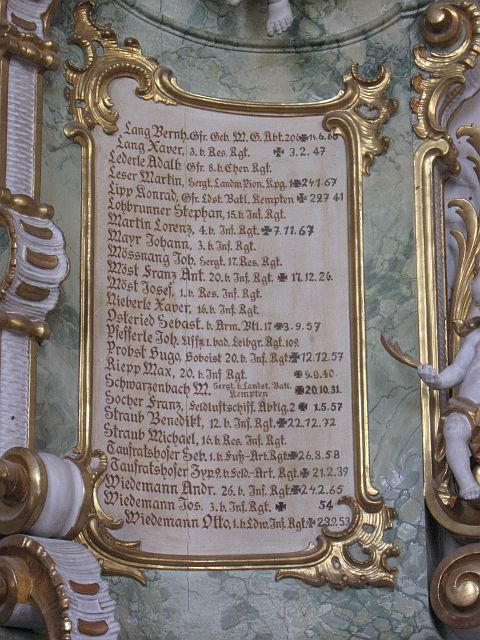 Lang Bernh. Gfr. Geb. M. G. Abt. 206 ✠ 14.6.68
Lang Xaver, 3. b. Res. Rgt. ✠ 3.2.47
Lederle Adalb. Gfr. 8. b. Chev. Rgt.
Leser Martin, Sergt. Landm. Pion. Kpg. 1 ✠ 24.1.67
Lipp Konrad, Gfr. Ldst. Batl. Kempten ✠ 29.7.41
Lobbrunner Stephan, 15. b. Inf. Rgt.
Martin Lorenz, 4. b. Inf. Rgt. ✠ 7.11.67
Mayr Johann, 3. b. Inf. Rgt.
Mössnang Joh. Sergt. 17. Res. Rgt.
Möst Franz Ant. 20. b. Inf. Rgt. ✠ 17.12.26.
Möst Josef, 1. b. Res. Inf. Rgt.
Nieberle Xaver, 16. b. Inf. Rgt.
Osteried Sebast. b. Arm. Btl. 17 ✠ 3.9.57
Pfefferle Joh. Uffz. 1. bad. Leibgr. Rgt. 109.
Probst Hugo, Hoboist 20. b. Inf. Rgt. ✠ 12.12.57
Riepp Max, 20. b. Inf. Rgt. ✠ 9.9.40
Schwarzenbach M. Sergt. b. Landst. Batl. Kempten ✠ 20.10.31.
Socher Franz, Feldluftschiff. Abtlg. 2 ✠ 1.5.57
Straub Benedikt, 12. b. Inf. Rgt. ✠ 22.12.72
Straub Michael, 16. b. Res. Inf. Rgt.
Taufratshofer Seb. 1. b. Fuß-Art. Rgt. ✠ 26.8.58
Taufratshofer Zyp. 9. b. Feld-Art. Rgt. ✠ 21.2.39
Wiedemann Andr. 26. b. Inf. Rgt. ✠ 24.2.65
Wiedemann Jos. 3. b. Inf. Rgt. ✠ 54
Wiedemann Otto, 1. b. Ldw. Inf. Rgt. ✠ 23.9.53